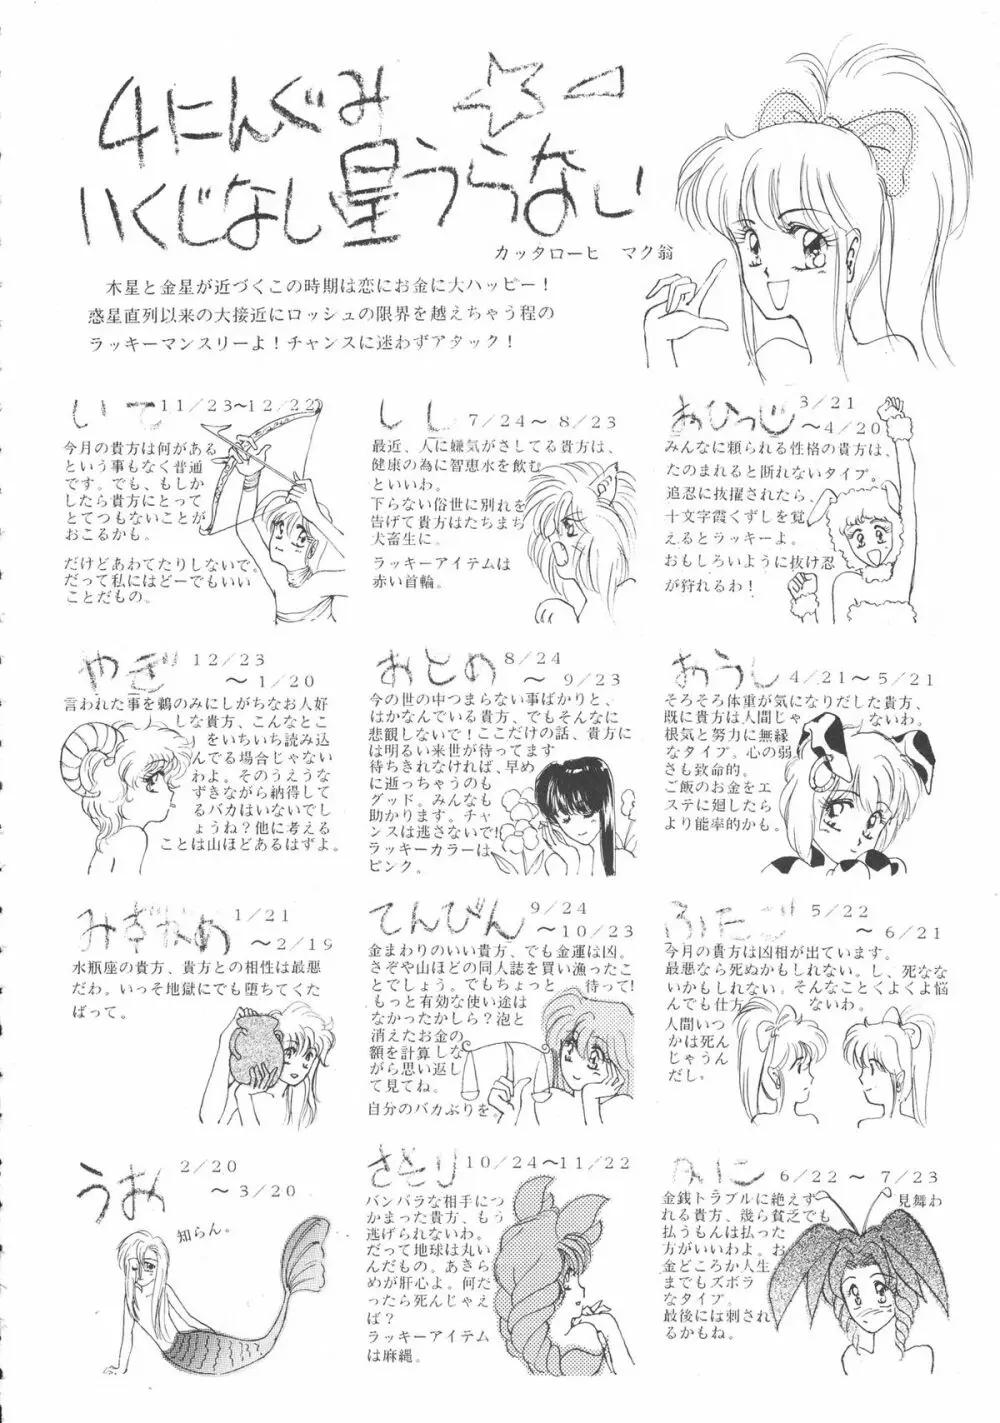 4にんぐみ
いくじなし星うらない
カッタローヒ　マク翁
木星と金星が近づくこの時期は恋にお金に大ハッピー！
惑星直列以来の大接近にロッシュの限界を越えちゃう程の
ラッキーマンスリーよ！チャンスに迷わずアタック！
おひつじ
3/21
～4/20
みんなに頼られる性格の貴方は、
たのまれると断れないタイプ。
追忍に抜擢されたら、
十文字霞くずしを覚
えるとラッキーよ。
おもしろいように抜け忍
が狩れるわ！
しし
7/24～8/23
最近、人に嫌気がさしてる貴方は、
健康の為に智恵水を飲む
といいわ。
下らない俗世に別れを
告げて貴方はたちまち
犬畜生に。
ラッキーアイテムは
赤い首輪。
いて
11/23～12/22
今月の貴方は何がある
という事もなく普通
です。でも、もしか
したら貴方にとって
とてつもないことが
おこるかも。
だけどあわてたりしないで。
だって私にはどーでもいい
ことだもの。
おうし
4/21～5/21
そろそろ体重が気になりだした貴方、
既に貴方は人間じゃ　ないわ。
根気と努力に無縁
なタイプ。心の弱
さも致命的。
ご飯のお金をエ
ステに廻したら
より能率的かも。
おとめ
8/24
～9/23
今の世の中つまらない事ばかりと、
はかなんでいる貴方、でもそんなに
悲観しないで！ここだけの話、貴方に
は明るい来世が待ってます
待ちきれなければ、早め
に逝っちゃうのも
グッド。みんなも
助かります。チャ
ンスは逃さないで！
ラッキーカラーは
ピンク。
やぎ
12/23
～1/20
言われた事を鵜のみにしがちなお人好
しな貴方、こんなとこ
をいちいち読み込
んでる場合じゃない
わよ。そのうえうな
ずきながら納得して
るバカはいないでし
ょうね？他に考える
ことは山ほどあるはずよ。
ふたご
5/22
～6/21
今月の貴方は凶相が出ています。
最悪なら死ぬかもしれない。し、死なな
いかもしれない。そんなことくよくよ悩
んでも仕方　ないわ。
人間いつ
かは死ん
じゃうん
だし。
てんびん
9/24
～10/23
金まわりのいい貴方、でも金運は凶。
さぞや山ほどの同人誌を買い漁ったこ
とでしょう。でもちょっと　待って！
もっと有効な使い途は
なかったかしら？泡と
消えたお金の
額を計算しな
がら思い返し
て見てね。
自分のバカぶりを。
みずがめ
1/21
～2/19
水瓶座の貴方、貴方との相性は最悪
だわ。いっそ地獄にでも堕ちてくた
ばって。
かに
6/22～7/23
金銭トラブルに絶えず　見舞わ
れる貴方、幾ら貧乏でも
払うもんは払った
方がいいわよ。お
金どころか人生
までもズボラ
なタイプ。
最後には刺され
るかもね。
さそり
10/24～11/22
バンバラな相手につ
かまった貴方、もう
逃げられないわ。
だって地球は丸い
んだもの。あきら
めが肝心よ。何だ
ったら死んじゃえ
ば？
ラッキーアイテム
は麻縄。
うお
2/20
～3/20
知らん。